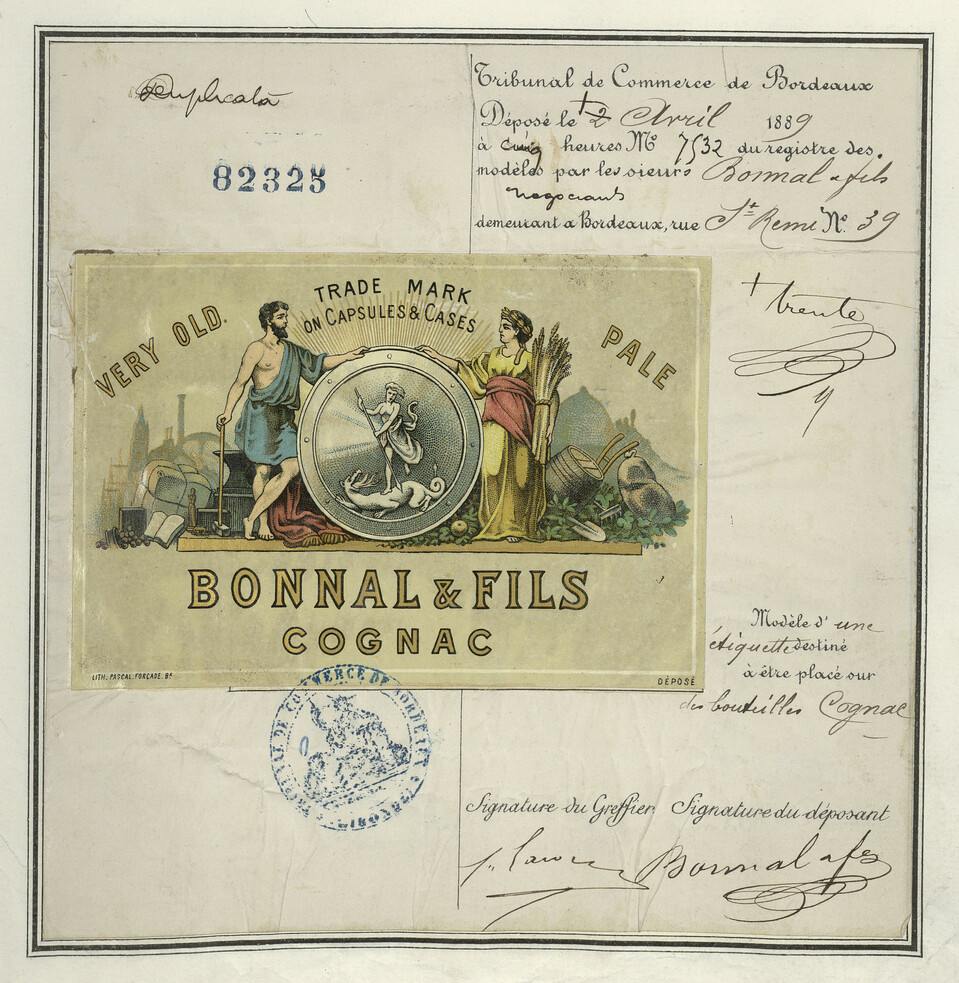 Duplicata
82325
Tribunal de Commerce de Bordeaux
Déposé le + 2 Avril 1889
à cinq heures No 7532 du registre des
modèles par les sieurs Bonnal & fils
negociants
demeurant à Bordeaux, rue St Remi No. 39
+ trente
TRADE MARK
ON CAPSULES & CASES
VERY OLD
PALE
BONNAL & FILS
COGNAC
LITH. PASCAL. FORCADE. Bx
DÉPOSÉ
Modèle d'une
étiquette destiné
à être placé sur
des bouteilles Cognac
COMMERCE DE BORDEAUX
GIRONDE
Signature du Greffier. Signature du déposant
Bonnal & fils